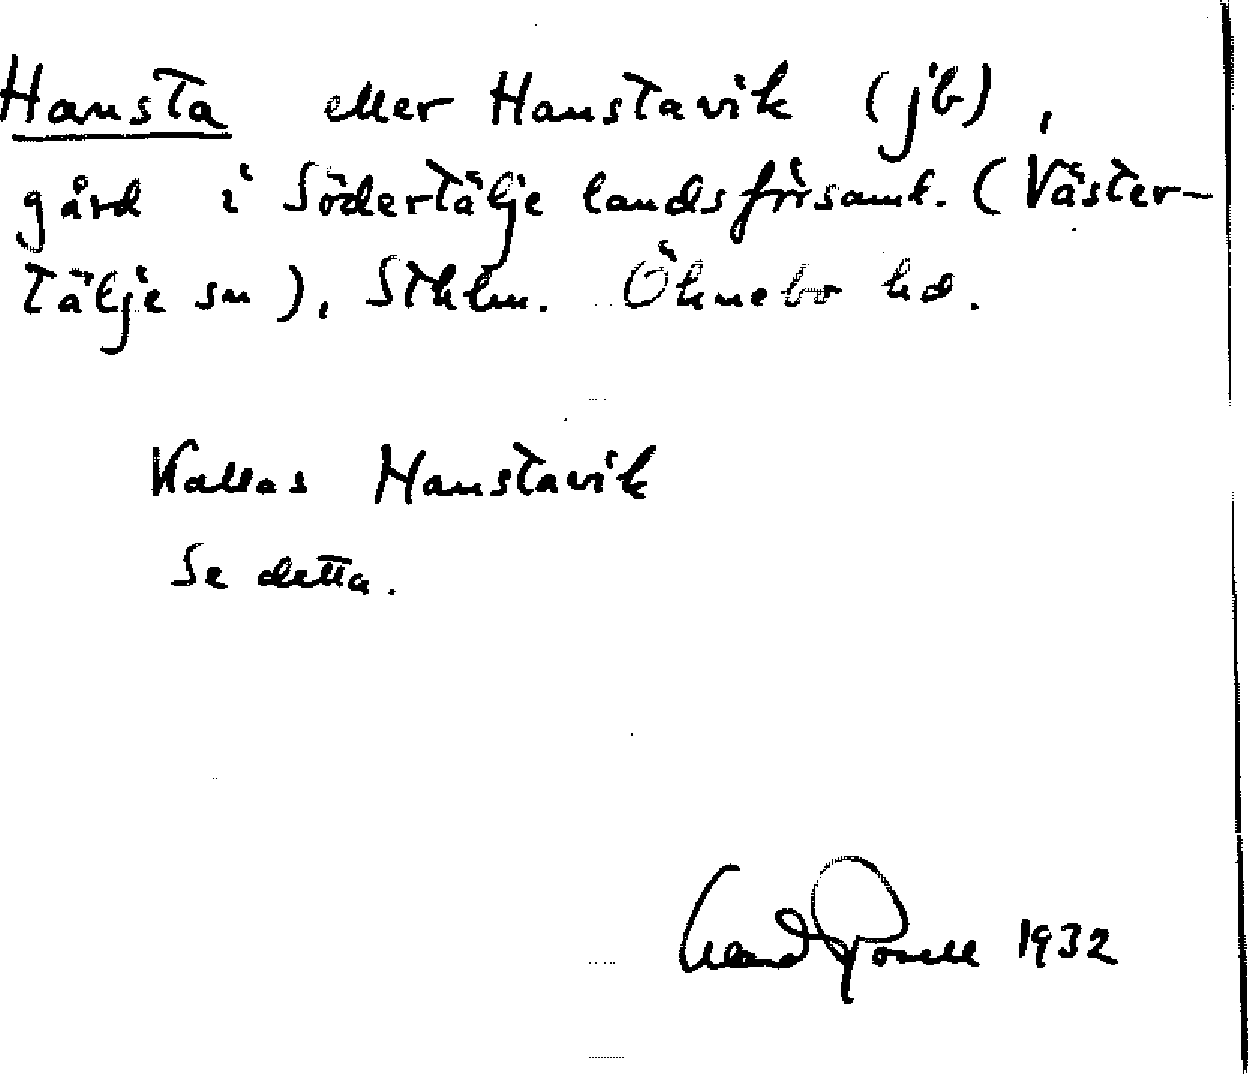 Hansta eller Hanstavik (jb),
gård i Södertälje landsförsaml. (Väster-
tälje sn), Sthlm. Öknebo hd.
Kallas Hanstavik
Se detta.
1932